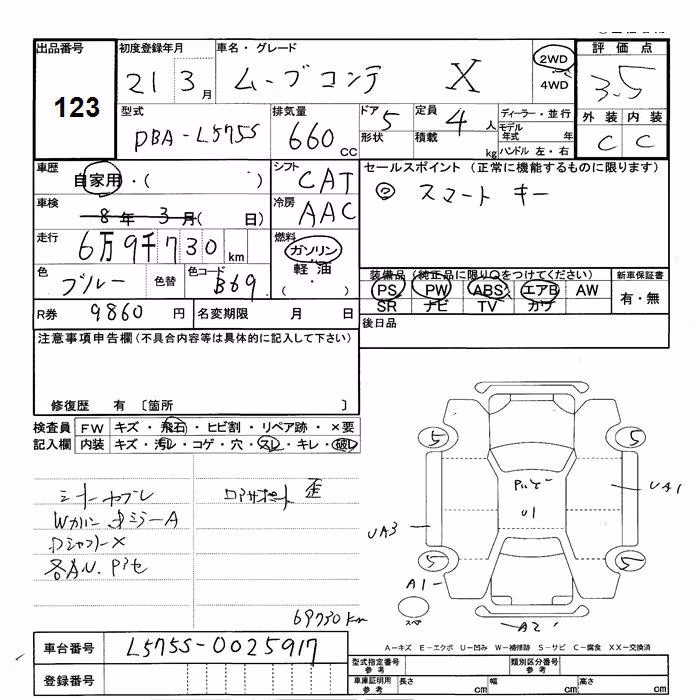 出品番号
123
初度登録年月
21 3月
車名・グレード
ムーブコンテ X
2WD
4WD
評価点
3.5
型式
DBA-L575S
排気量
660cc
ドア 5
形状
定員 4人
積載 kg
ディーラー・並行
モデル年式 年
ハンドル 左・右
外装 内装
C C
車歴
自家用・( )
シフト
CAT
セールスポイント (正常に機能するものに限ります)
◎ スマート キー
車検
8年3月( 日)
冷房
AAC
走行
6万9千730km
燃料
ガソリン・
軽油・
( )
色
ブルー
色替
色コード
B69
装備品(純正品に限り○をつけてください)
PS PW ABS エアB AW
SR ナビ TV カワ
新車保証書
有・無
R券 9860円
名変期限 月 日
後日品
注意事項申告欄(不具合内容等は具体的に記入して下さい)
修復歴 有 〔箇所 〕
検査員記入欄
FW キズ・飛石・ヒビ割・リペア跡・×要
内装 キズ・汚レ・コゲ・穴・スレ・キレ・破レ
シートヤブレ
コアサポート 歪
69730km
5 5
5 5
U1
UA1
UA3
A1
A2
A-キズ E-エクボ U-凹み W-補修跡 S-サビ C-腐食 XX-交換済
車台番号 L575S-0025917
登録番号
型式指定番号 参考
類別区分番号 参考
車庫証明用 参考
長さ cm
幅 cm
高さ cm